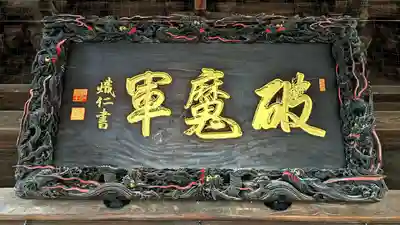 破魔軍
熾仁書